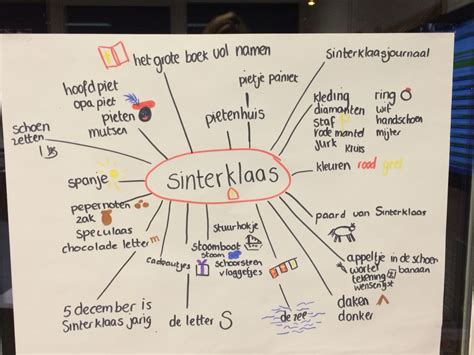 het grote boek vol namen
Sinterklaasjournaal
hoofdpiet
opa piet
pieten
mutsen
pietje paniek
pietenhuis
kleding
diamanten
staf
rode mantel
jurk
kruis
ring
wit
handschoen
mijter
schoen
zetten
kleuren rood geel
spanje
sinterklaas
pepernoten
zak
speculaas
chocolade letter m
paard van Sinterklaas
stuurhokje
stoomboot
stoom
schoorsteen
vlaggetjes
cadeautjes
appeltje in de schoen
wortel
banaan
tekening
wenslijst
5 december is
Sinterklaas jarig
de letter S
de zee
daken
donker